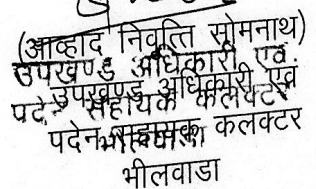 (आव्हाद निवृत्ति सोमनाथ)
उपखण्ड अधिकारी एवं
उपखण्ड अधिकारी एवं
पदेन सहायक कलेक्टर
पदेन सहायक कलक्टर
भीलवाडा